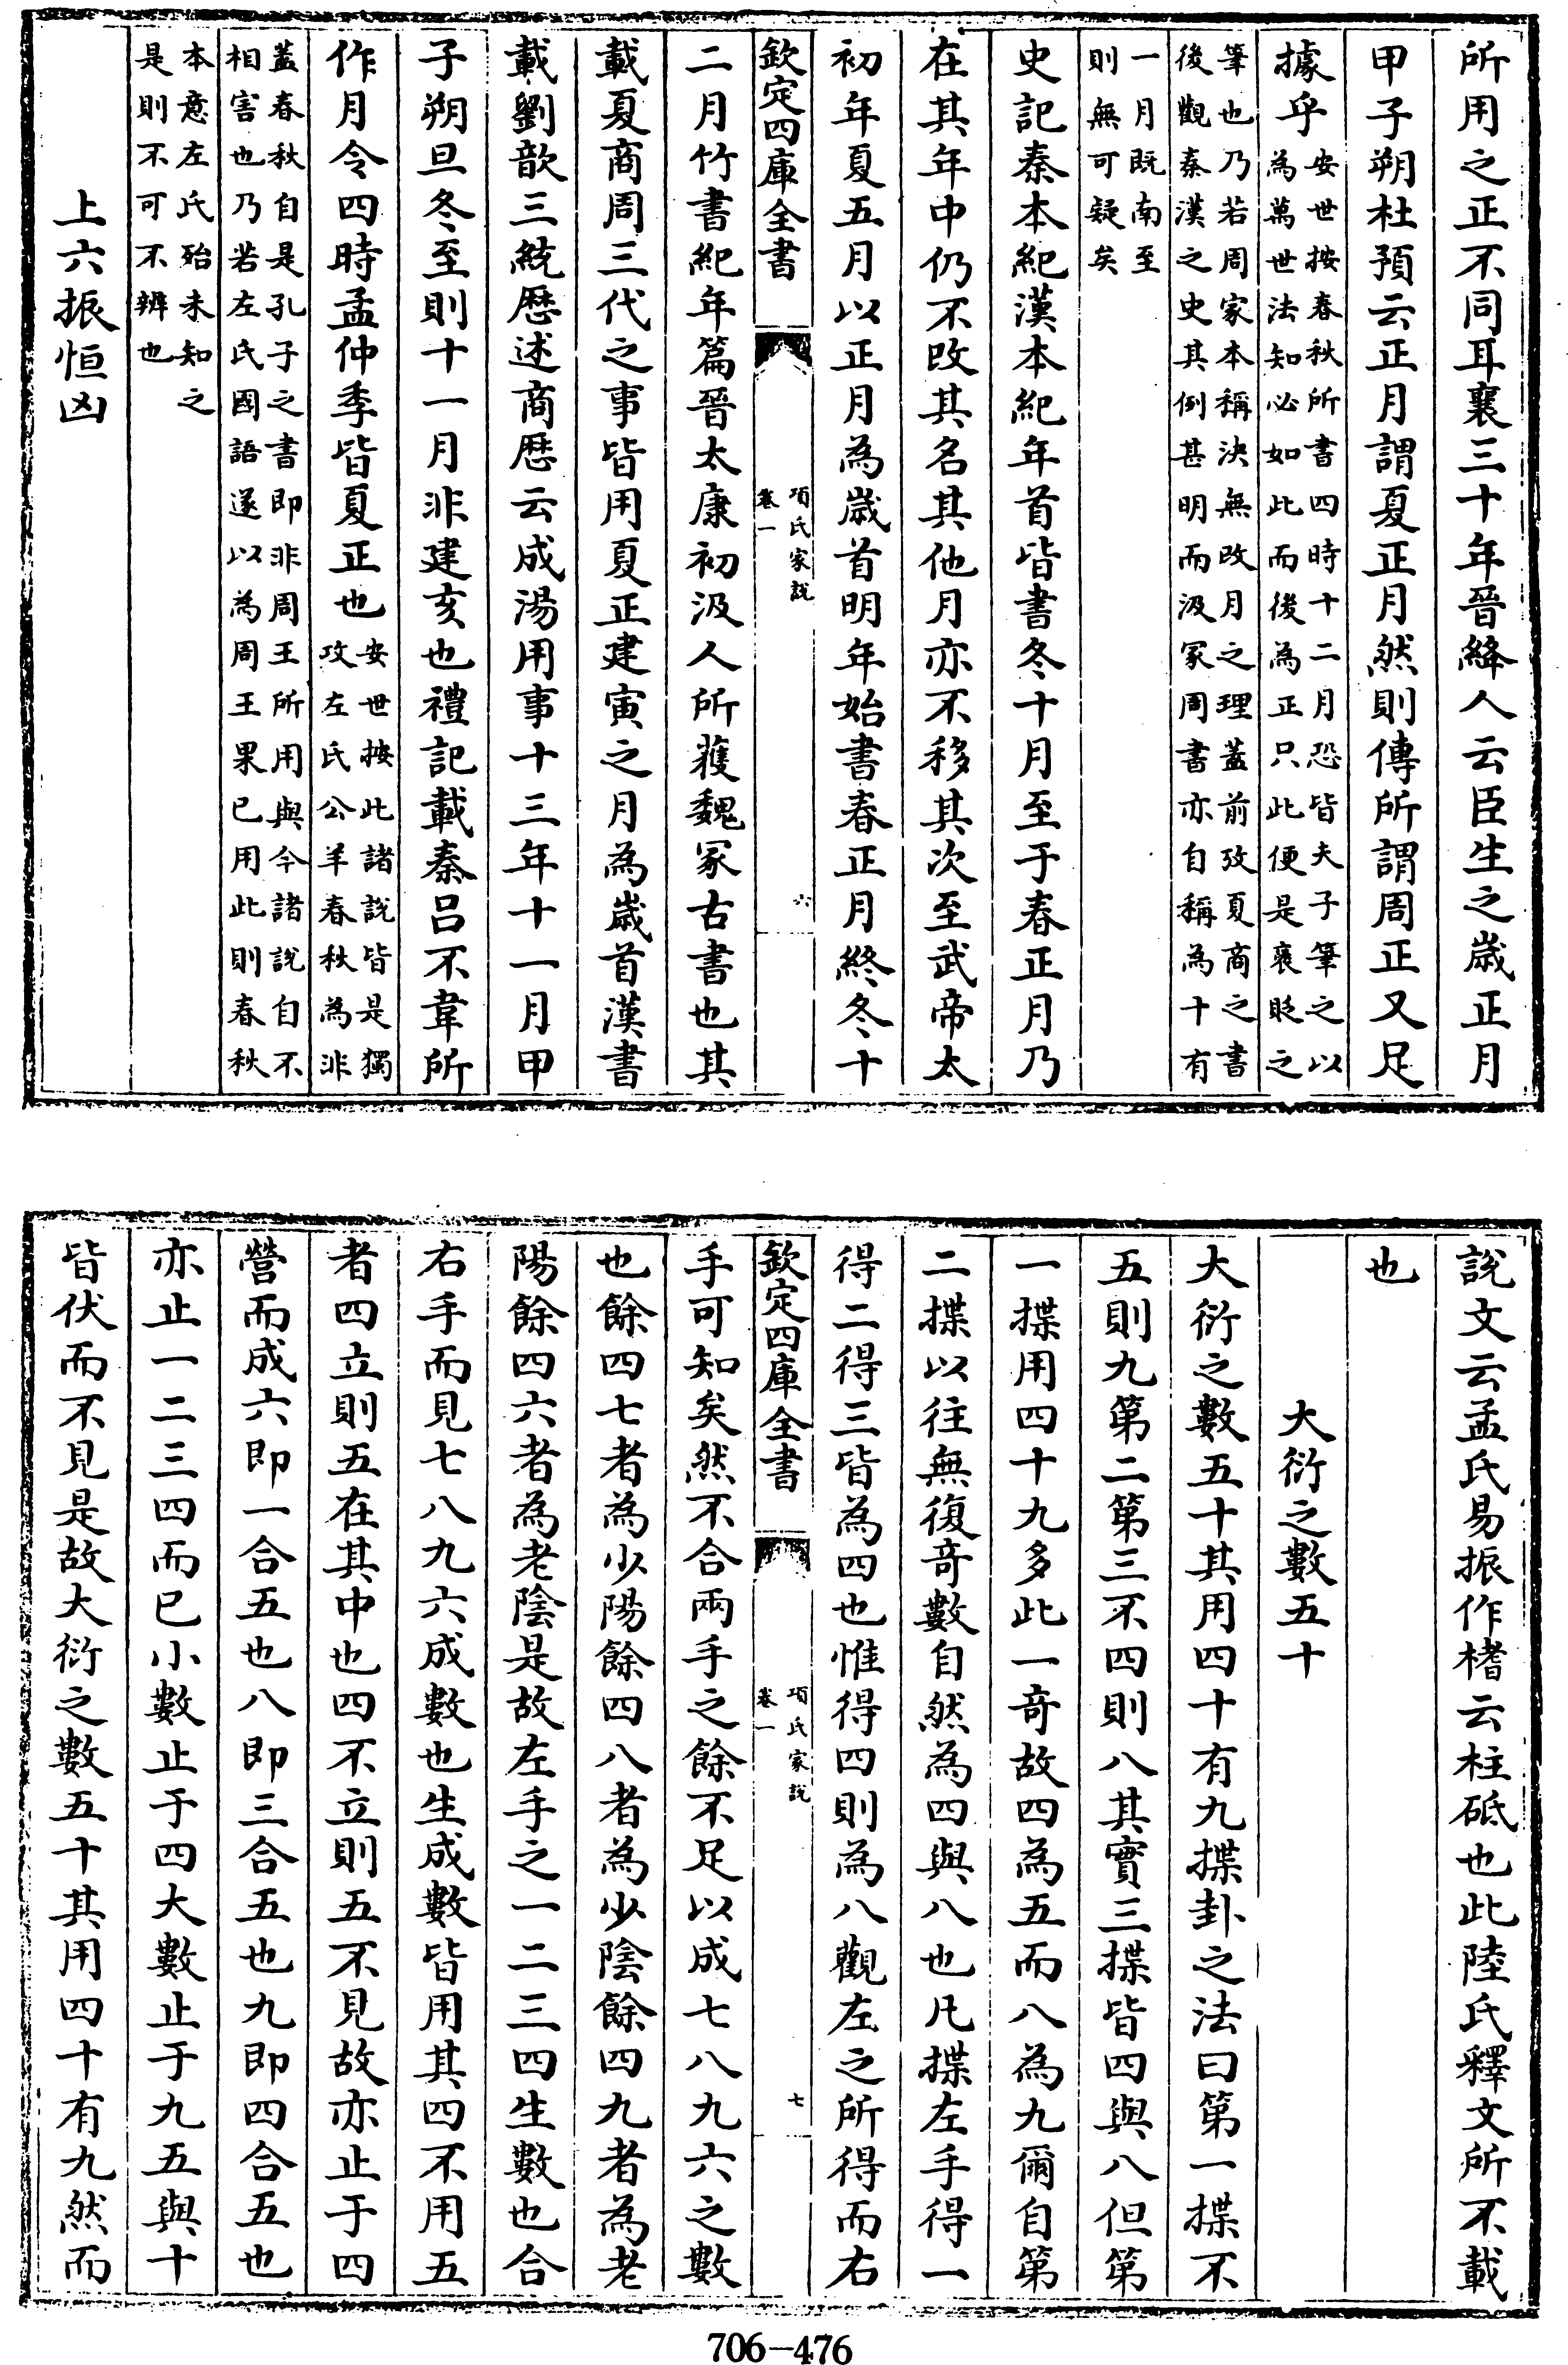 所用之正不同耳襄三十年晉絳人云臣生之歲正月
甲子朔杜預云正月謂夏正月然則傳所謂周正又足
據乎安世按春秋所書四時十二月恐皆夫子筆之以
為萬世法知必如此而後為正只此便是褒貶之
筆也乃若周家本稱決無改月之理蓋前攷夏商之書
後觀秦漢之史其例甚明而汲冢周書亦自稱為十有
一月既南至
則無可疑矣
史記秦本紀漢本紀年首皆書冬十月至于春正月乃
在其年中仍不改其名其他月亦不移其次至武帝太
初年夏五月以正月為歲首明年始書春正月終冬十
欽定四庫全書
項氏家說
卷一
六
二月竹書紀年篇晉太康初汲人所獲魏冢古書也其
載夏商周三代之事皆用夏正建寅之月為歲首漢書
載劉歆三統歷述商歷云成湯用事十三年十一月甲
子朔旦冬至則十一月非建亥也禮記載秦吕不韋所
作月令四時孟仲季皆夏正也安世按此諸說皆是獨
攷左氏公羊春秋為非
蓋春秋自是孔子之書即非周王所用與今諸說自不
相害也乃若左氏國語遂以為周王果已用此則春秋
本意左氏殆未知之
是則不可不辨也
上六振恒凶
說文云孟氏易振作榰云柱砥也此陸氏釋文所不載
也
大衍之數五十
大衍之數五十其用四十有九揲卦之法曰第一揲不
五則九第二第三不四則八其實三揲皆四與八但第
一揲用四十九多此一奇故四為五而八為九爾自第
二揲以往無復奇數自然為四與八也凡揲左手得一
得二得三皆為四也惟得四則為八觀左之所得而右
欽定四庫全書
項氏家說
卷一
七
手可知矣然不合兩手之餘不足以成七八九六之數
也餘四七者為少陽餘四八者為少陰餘四九者為老
陽餘四六者為老陰是故左手之一二三四生數也合
右手而見七八九六成數也生成數皆用其四不用五
者四立則五在其中也四不立則五不見故亦止于四
營而成六即一合五也八即三合五也九即四合五也
亦止一二三四而已小數止于四大數止于九五與十
皆伏而不見是故大衍之數五十其用四十有九然而
706-476